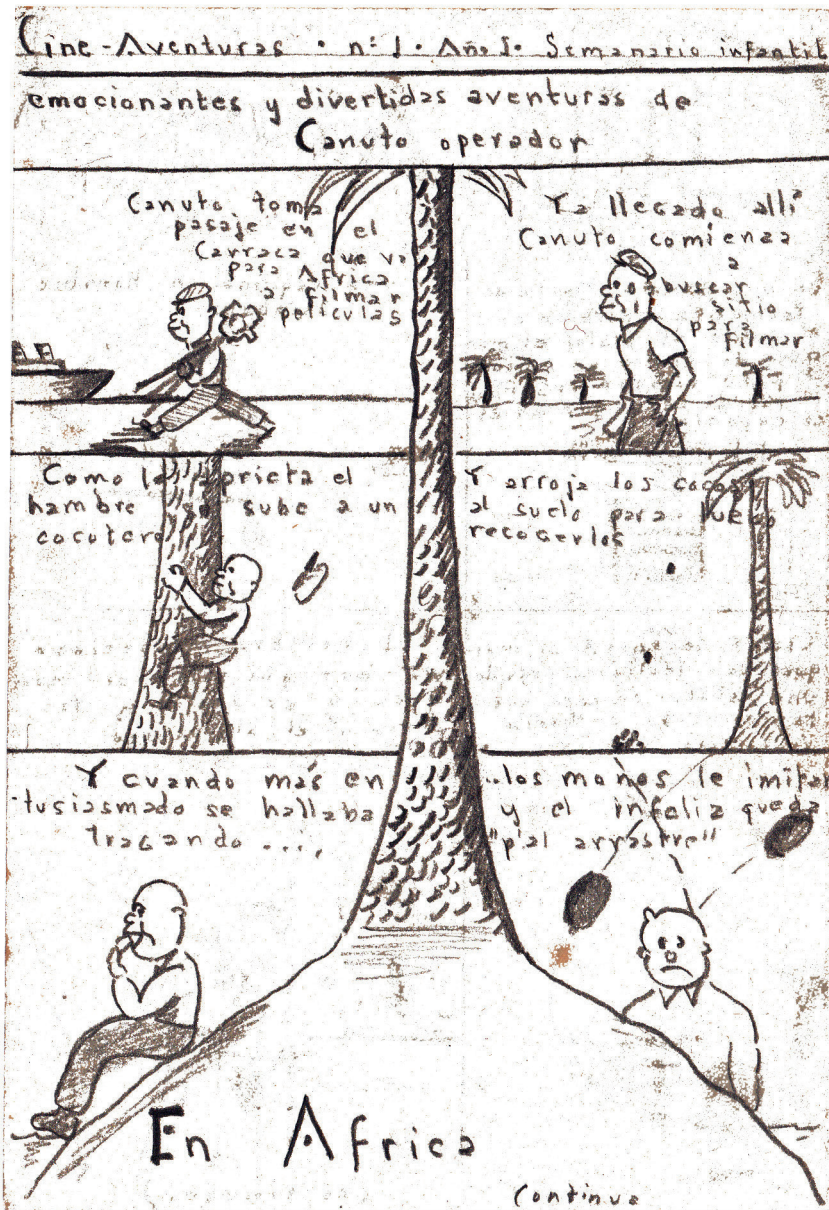 Cine-Aventuras · nº 1 · Año I · Semanario infantil
emocionantes y divertidas aventuras de
Canuto operador
Canuto toma
pasaje en el
Carraca que va
para Africa
a filmar
peliculas
Ya llegado allí
Canuto comienza
a
buscar
sitio
para
filmar
Como le aprieta el
hambre se sube a un
cocotero
Y arroja los cocos
al suelo para luego
recogerlos
Y cuando más en
tusiasmado se hallaba
tragando ....,
..los monos le imitan
y el infeliz queda
"p'al arrastre"
En Africa
Continua